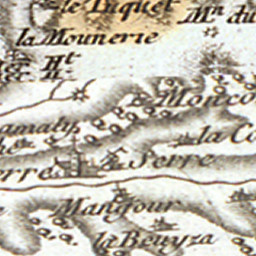 le Tuquet
Mn du
la Mounerie
Ht
Monco
amalis
la Co
Serre
erre
Manjour
la Beuyza